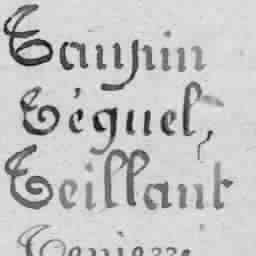 Taupin
Téguel,
Teillant